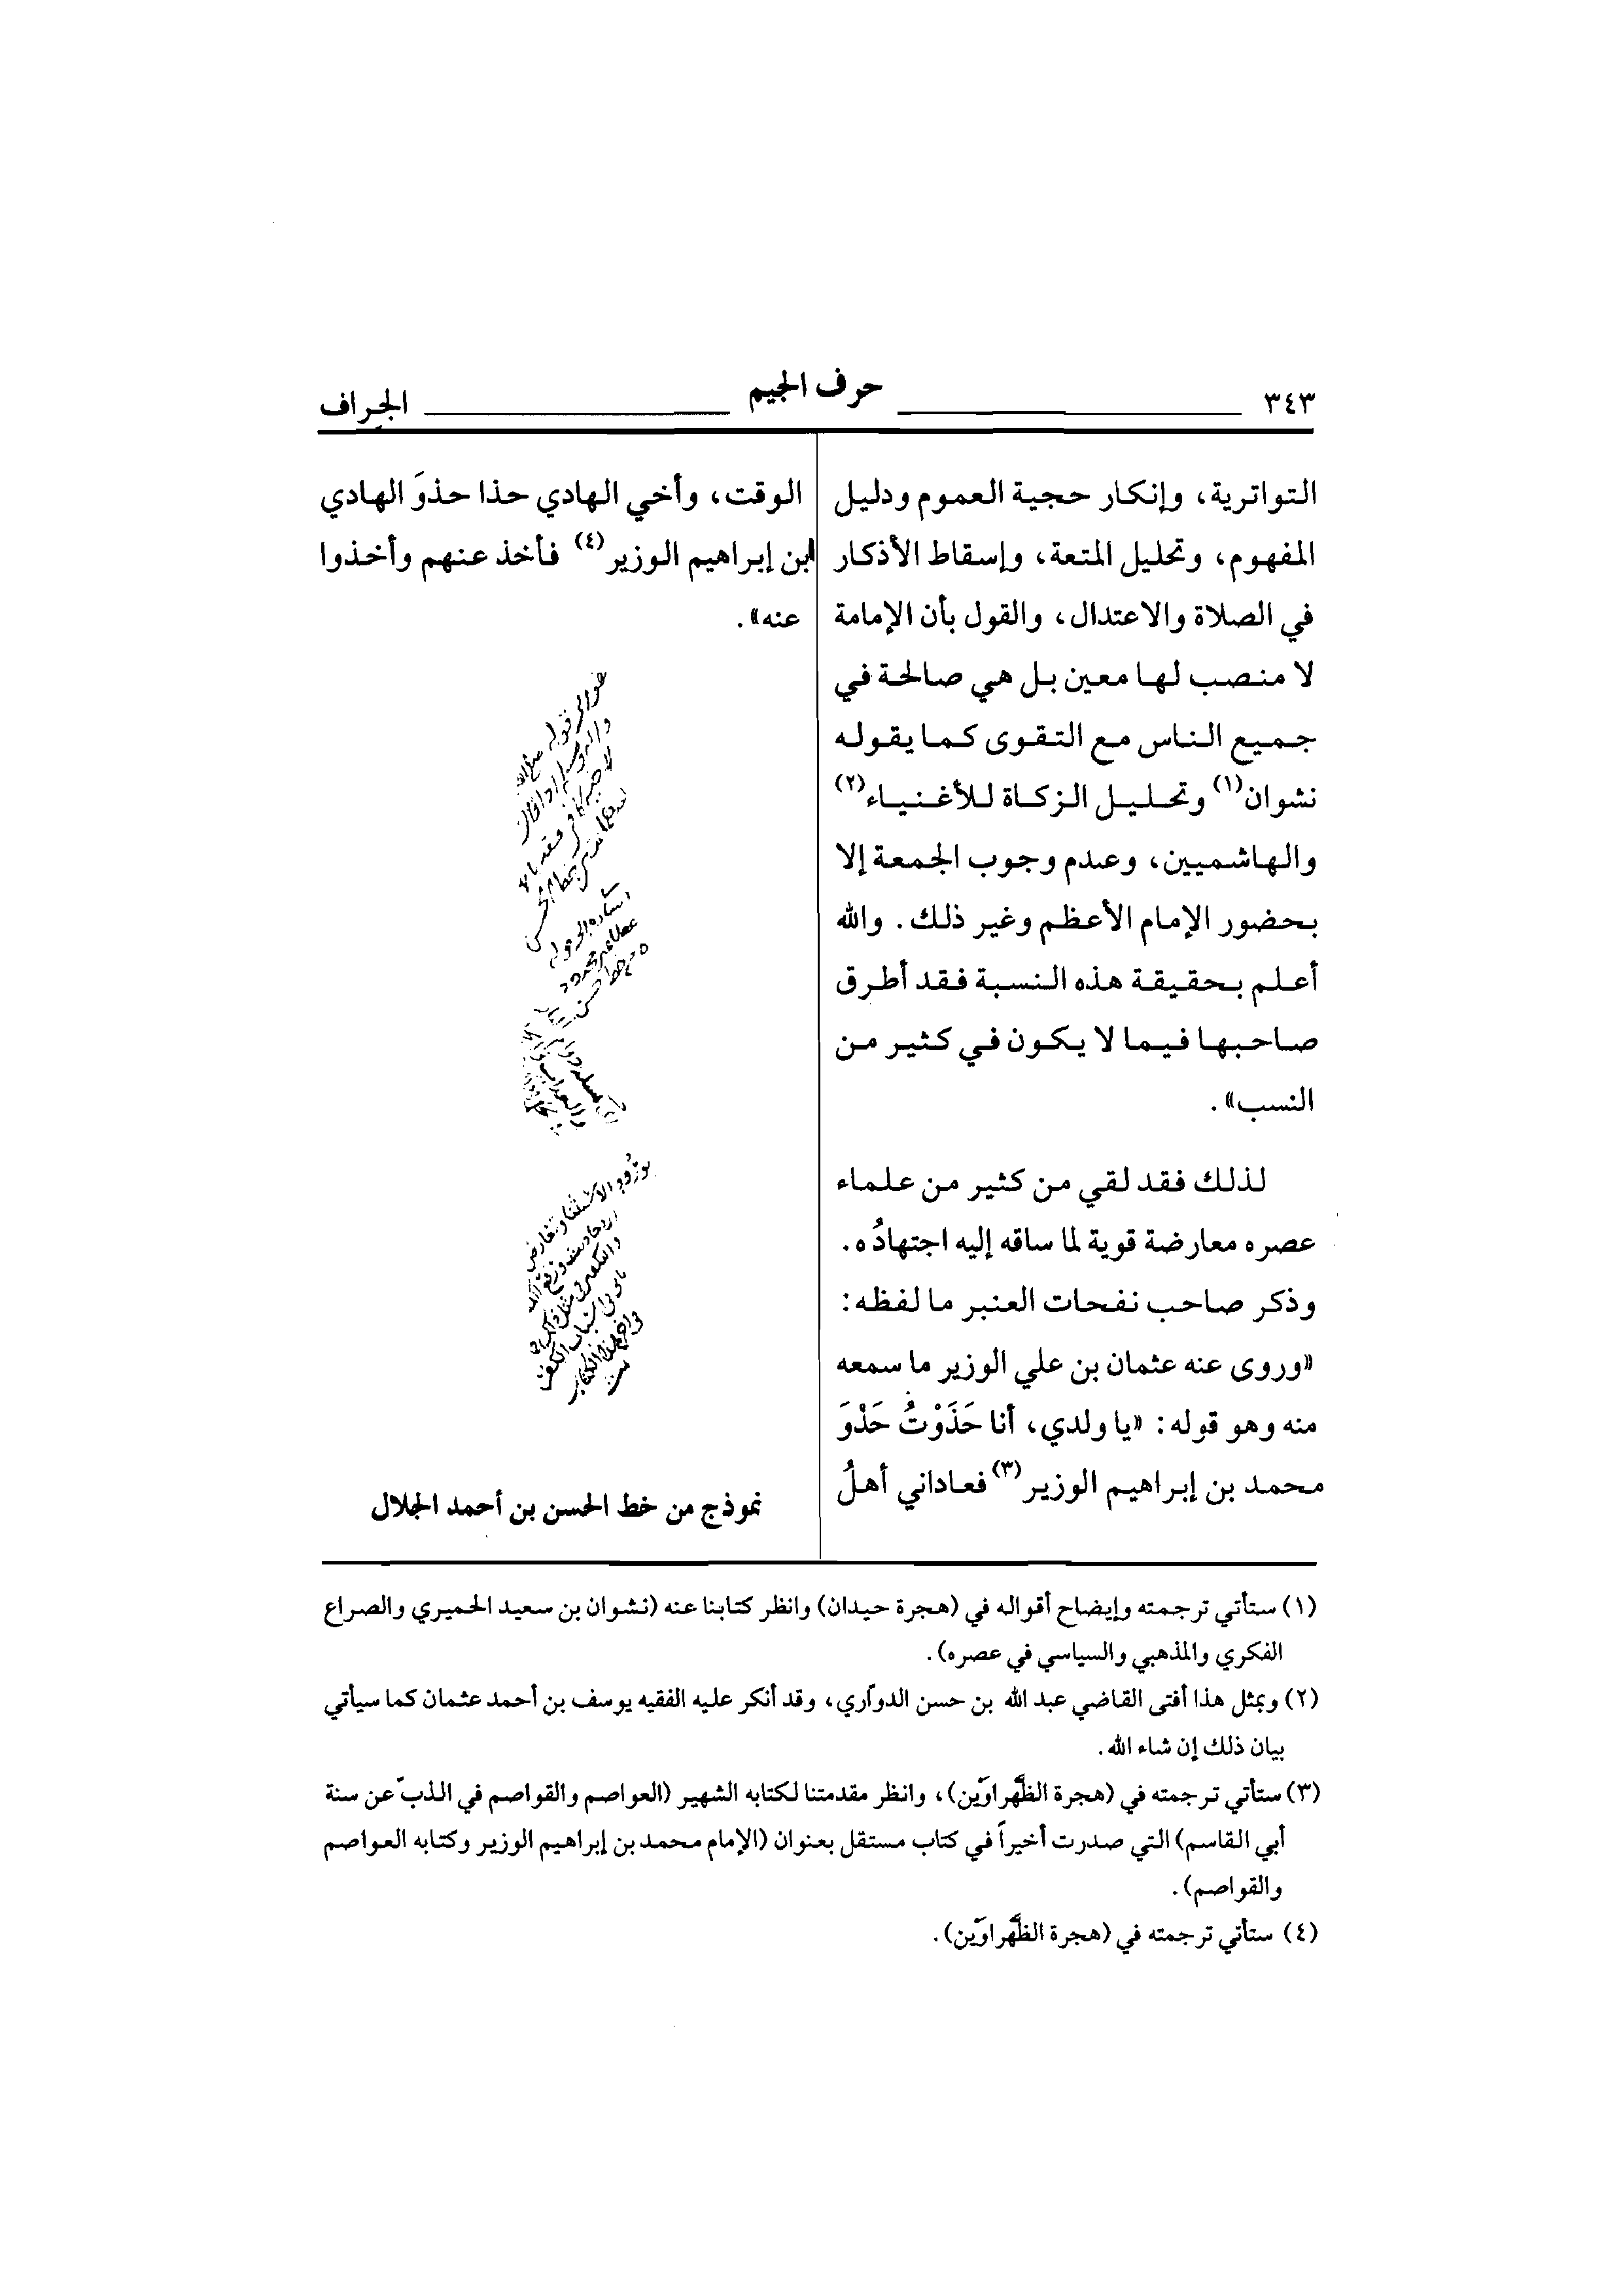 ٣٤٣ حرف الجيم الجراف
التواترية، وإنكار حجية العموم ودليل
المفهوم، وتحليل المتعة، وإسقاط الأذكار
في الصلاة والاعتدال، والقول بأن الإمامة
لا منصب لها معين بل هي صالحة في
جميع الناس مع التقوى كما يقوله
نشوان(١) وتحليل الزكاة للأغنياء(٢)
والهاشميين، وعدم وجوب الجمعة إلا
بحضور الإمام الأعظم وغير ذلك. والله
أعلم بحقيقة هذه النسبة فقد أطرق
صاحبها فيما لا يكون في كثير من
النسب».
لذلك فقد لقي من كثير من علماء
عصره معارضة قوية لما ساقه إليه اجتهادُه.
وذكر صاحب نفحات العنبر ما لفظه:
«وروى عنه عثمان بن علي الوزير ما سمعه
منه وهو قوله: «يا ولدي، أنا حَذَوْتُ حَذْوَ
محمد بن إبراهيم الوزير(٣) فعاداني أهلُ
الوقت، وأخي الهادي حذا حذوَ الهادي
ابن إبراهيم الوزير(٤) فأخذ عنهم وأخذوا
عنه».
نموذج من خط الحسن بن أحمد الجلال
(١) ستأتي ترجمته وإيضاح أقواله في (هجرة حيدان) وانظر كتابنا عنه (نشوان بن سعيد الحميري والصراع
الفكري والمذهبي والسياسي في عصره).
(٢) وبمثل هذا أفتى القاضي عبد الله بن حسن الدوّاري، وقد أنكر عليه الفقيه يوسف بن أحمد عثمان كما سيأتي
بيان ذلك إن شاء الله.
(٣) ستأتي ترجمته في (هجرة الظَّهراوَين)، وانظر مقدمتنا لكتابه الشهير (العواصم والقواصم في الذبّ عن سنة
أبي القاسم) التي صدرت أخيراً في كتاب مستقل بعنوان (الإمام محمد بن إبراهيم الوزير وكتابه العواصم
والقواصم).
(٤) ستأتي ترجمته في (هجرة الظَّهراوَين).